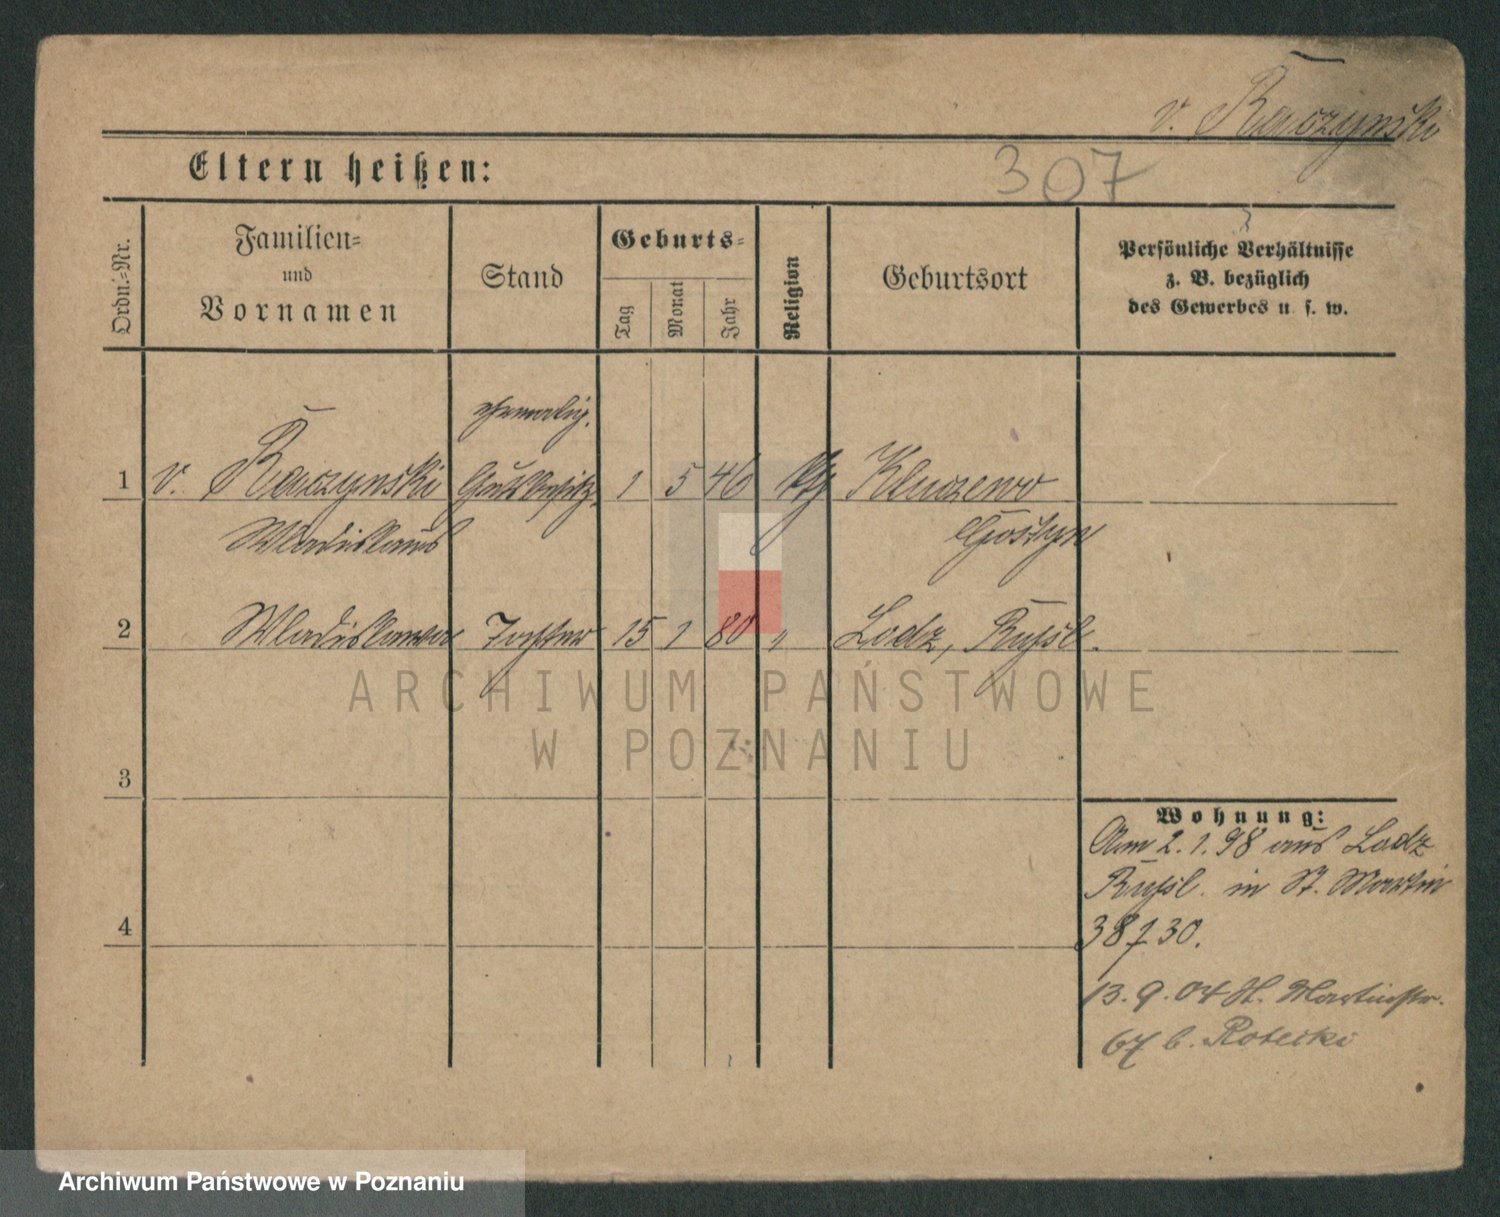 v. Raczynski
Eltern heißen:
307
Ordn.-Nr.
Familien-
und
Vornamen
Stand
Geburts-
Tag
Monat
Jahr
Religion
Geburtsort
Persönliche Verhältnisse
z. B. bezüglich
des Gewerbes u. s. w.
ehemalig.
1 v. Raczynski Gutsbesitz. 1 5 46 kth Kluczewo
Wladislaus Gostyn
2 Wladislawa Tochter 15 1 80 " Lodz, Rußl.
ARCHIWUM PAŃSTWOWE
W POZNANIU
3
4
Wohnung:
Am 2.1.98 aus Lodz
Rußl. in St. Martin
38 f 30.
13.9.04 St. Martinstr.
67 b. Rotecki
Archiwum Państwowe w Poznaniu